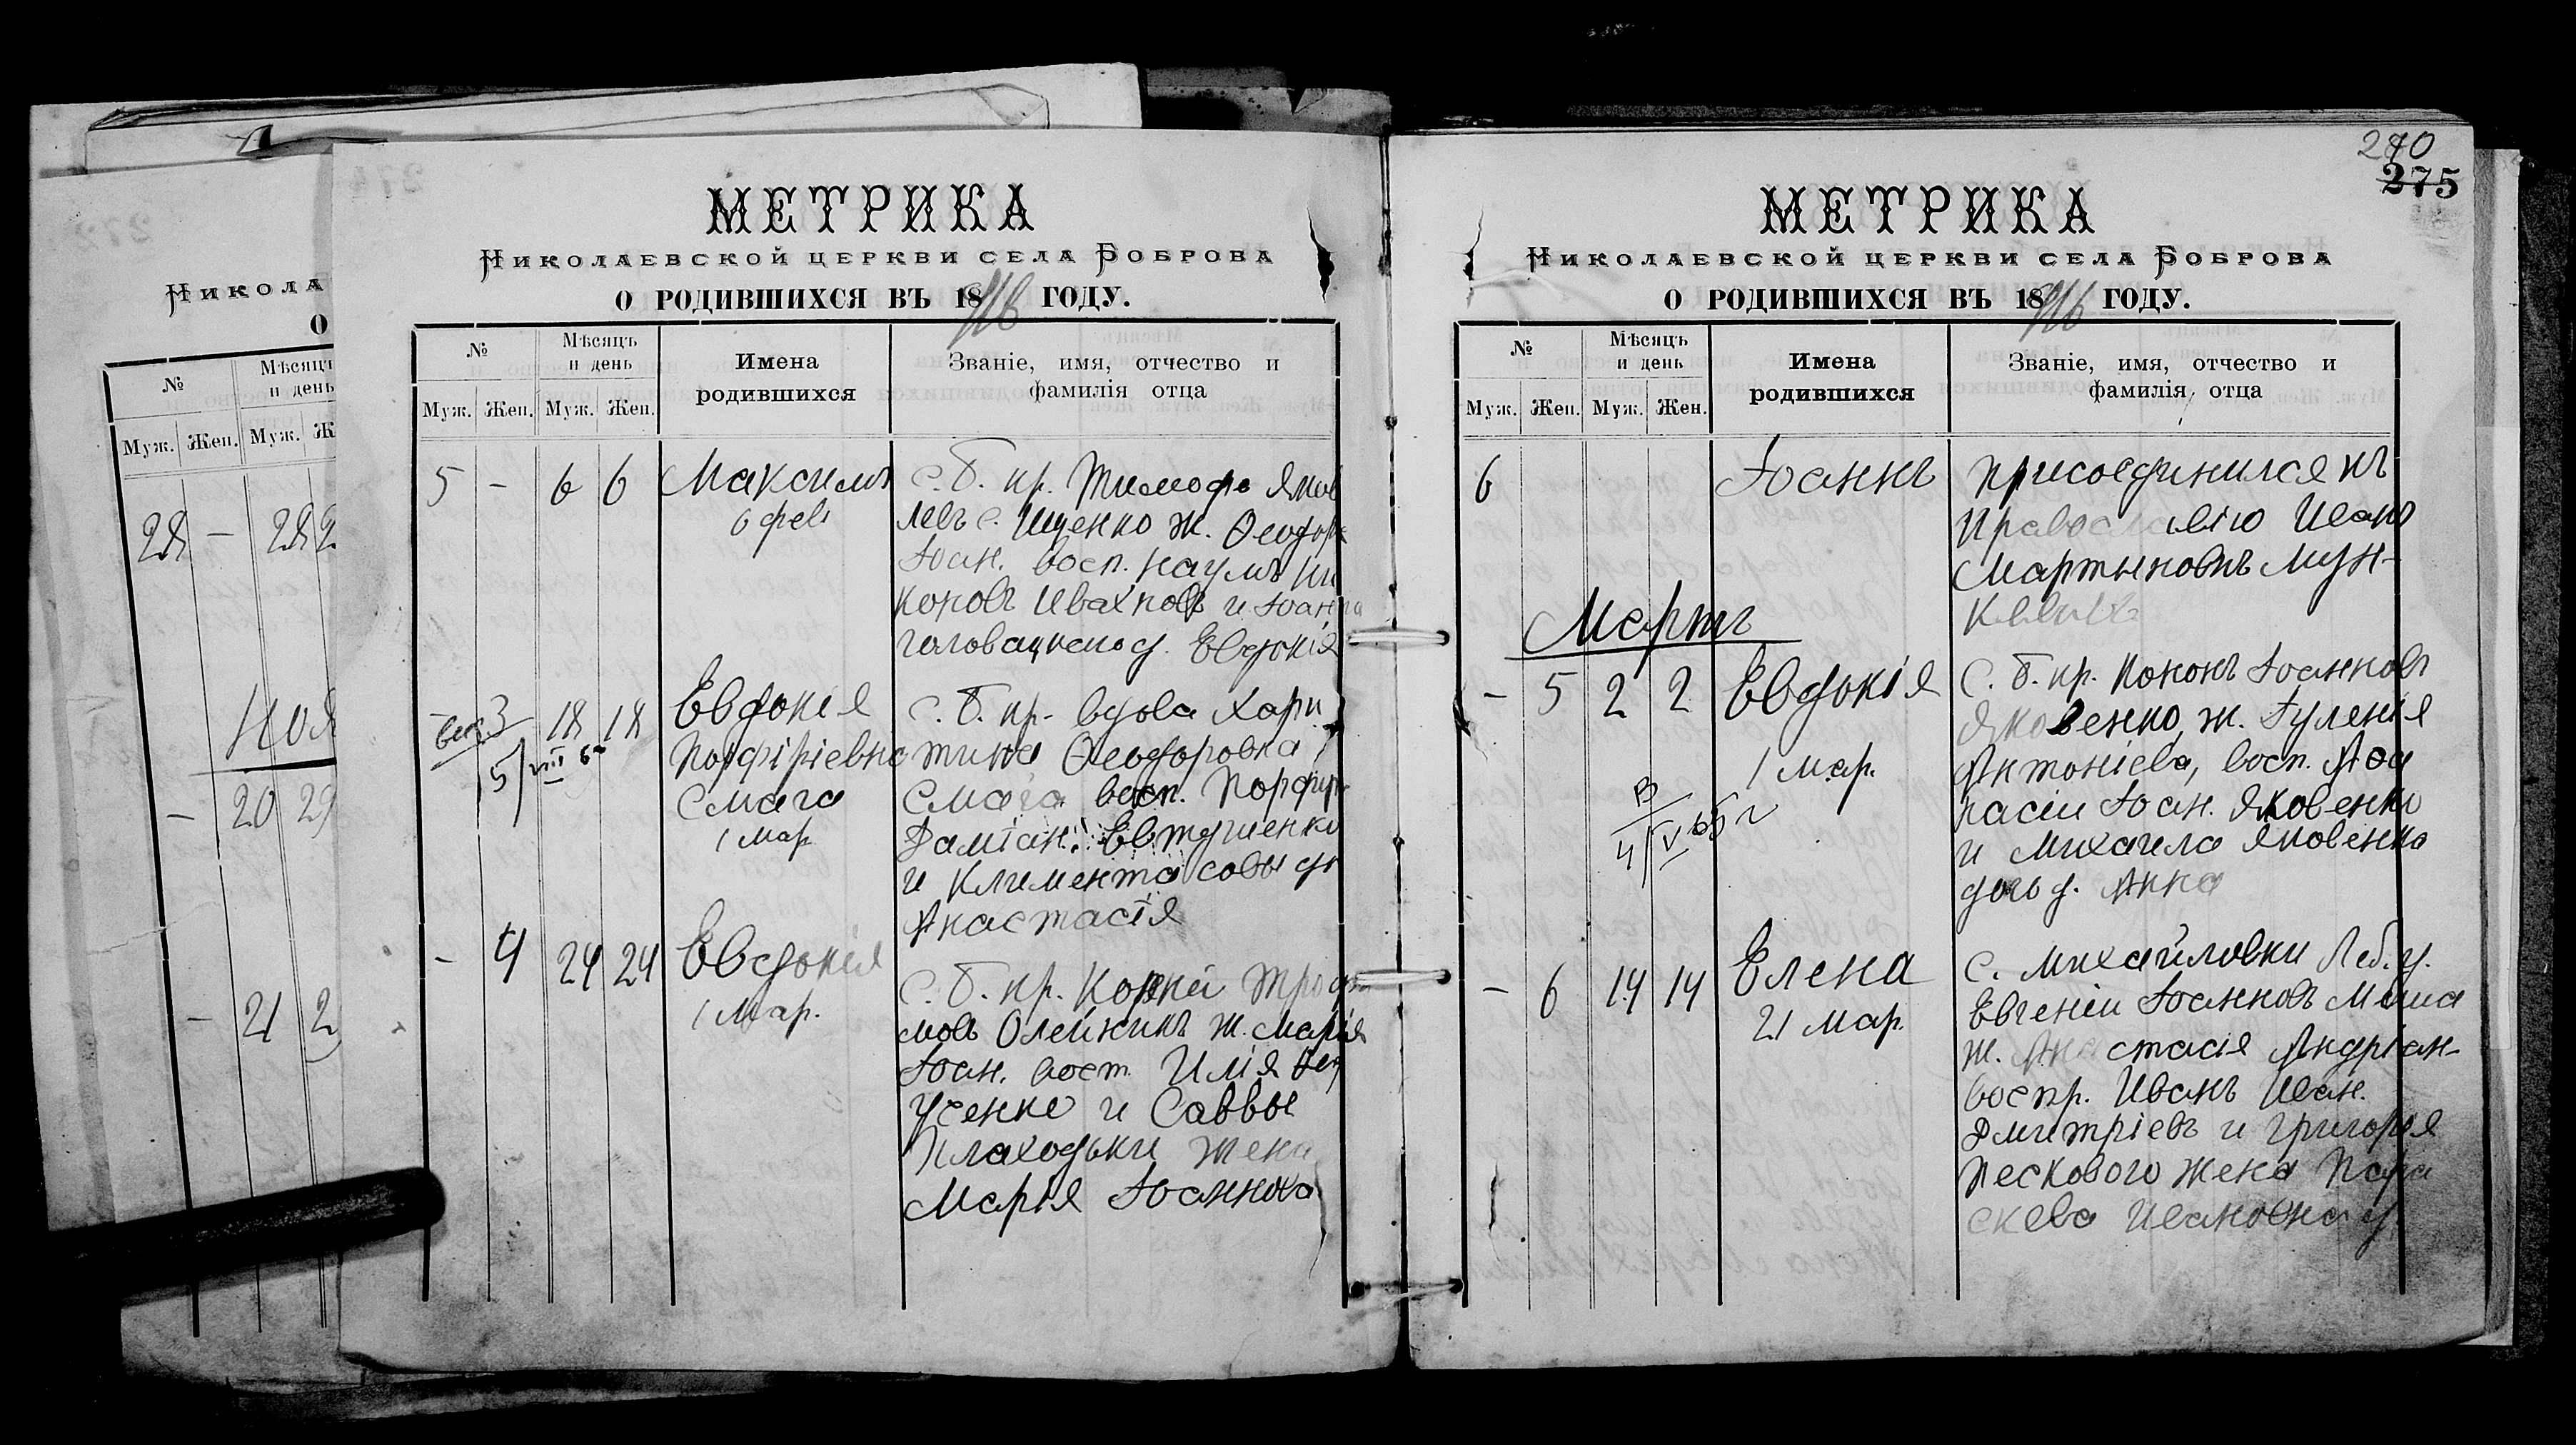 Никола
О
№
Мѣсяцъ
и день
Муж. Жен. Муж. Ж
28 - 28 2
Ноя
- 20 29
- 21 2
МЕТРИКА
Николаевской церкви села Боброва
О РОДИВШИХСЯ ВЪ 18 916 ГОДУ.
№
Мѣсяцъ
и день
Имена
родившихся
Званіе, имя, отчество и
фамилія отца
Муж. Жен. Муж. Жен.
5 - 6 6 Максимъ
6 фев
С. Б. кр. Тимофе Яков
левъ с. Ищенко ж. Ѳеодора
Іоан. восп. Наумъ Ни
коновъ Ивахновъ и Іоанна
Головащенко д. Евдокія
- 3 18 18 Евдокія
5/VIII 6
Порфиріевна
Смага
1 мар
С. Б. кр. вдова Хари
тина Ѳеодоровна
Смага восп. Порфир
Даміан. Евтушенко
и Климента Совы д
Анастасія
- 4 24 24 Евдокія
1 Мар.
С. Б. кр. Корній Троф
мовъ Олейникъ ж. Марія
Іоан. восп. Илія
Усенко и Саввы
Плаходьки жена
Марія Іоаннова
270
275
МЕТРИКА
Николаевской церкви села Боброва
О РОДИВШИХСЯ ВЪ 18 916 ГОДУ.
№
Мѣсяцъ
и день
Имена
родившихся
Званіе, имя, отчество и
фамилія отца
Муж. Жен. Муж. Жен.
6 Іоаннъ
Присоединился къ
Православію Иванъ
Мартыновъ Мун-
Мартъ
- 5 2 2 Евдокія
1 Мар.
В
4/V 65 г
С. Б. кр. Кононъ Іоанновъ
Яковенко, ж. Іуленія
Антоніева, восп. Аѳа
насіи Іоан. Яковенко
и Михаила Яковенко
дочь д. Анна
- 6 14 14 Елена
21 Мар.
С. Михайловки Леб. у.
Евгеній Іоанновъ
ж. Анастасія Андріан-
воспр. Иванъ Иван.
Дмитріевъ и Григорія
Пескового жена Пара
скева Ивановна